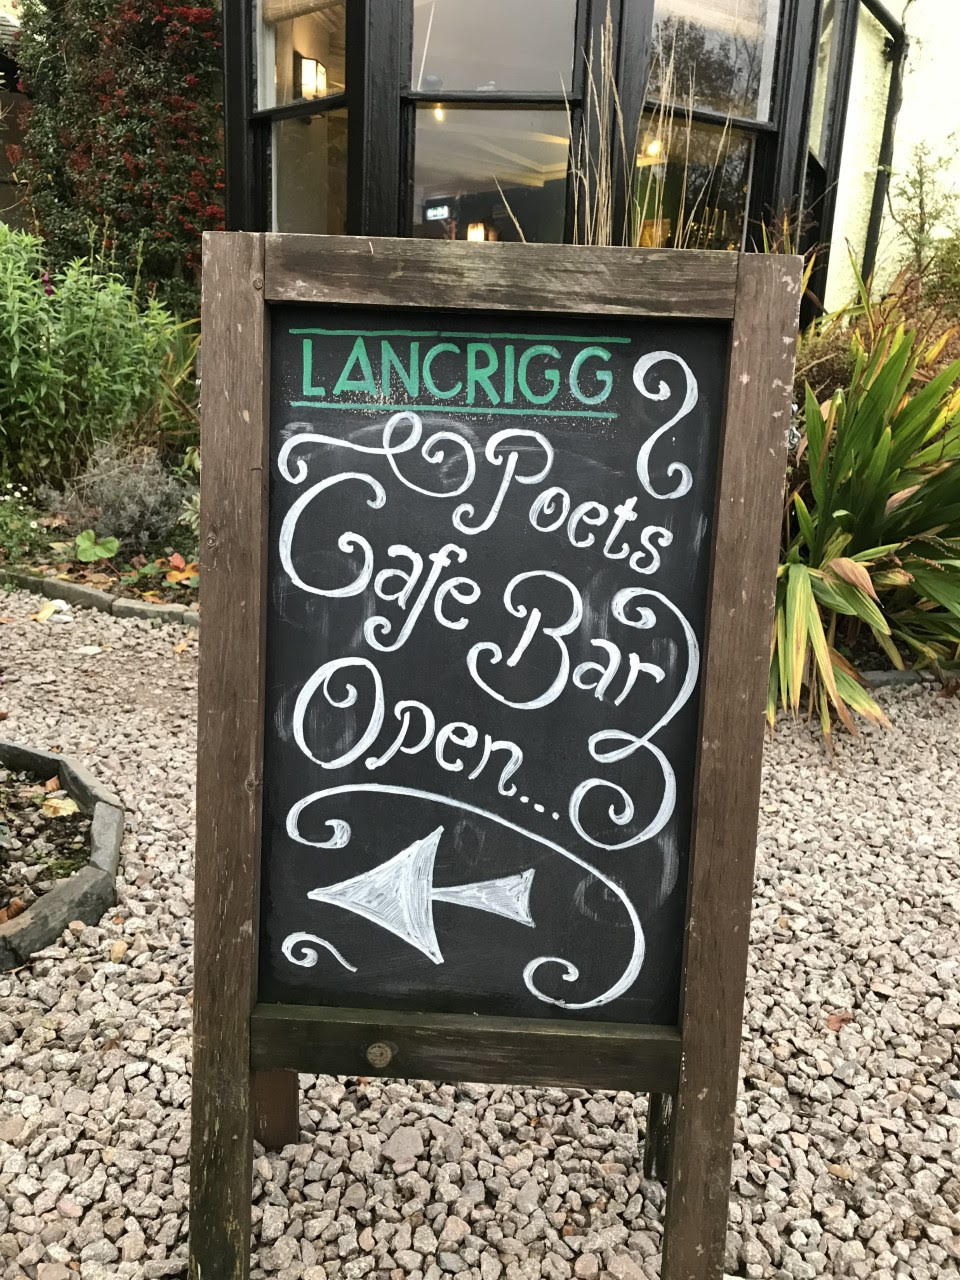 LANCRIGG
Poets
Cafe Bar
Open...